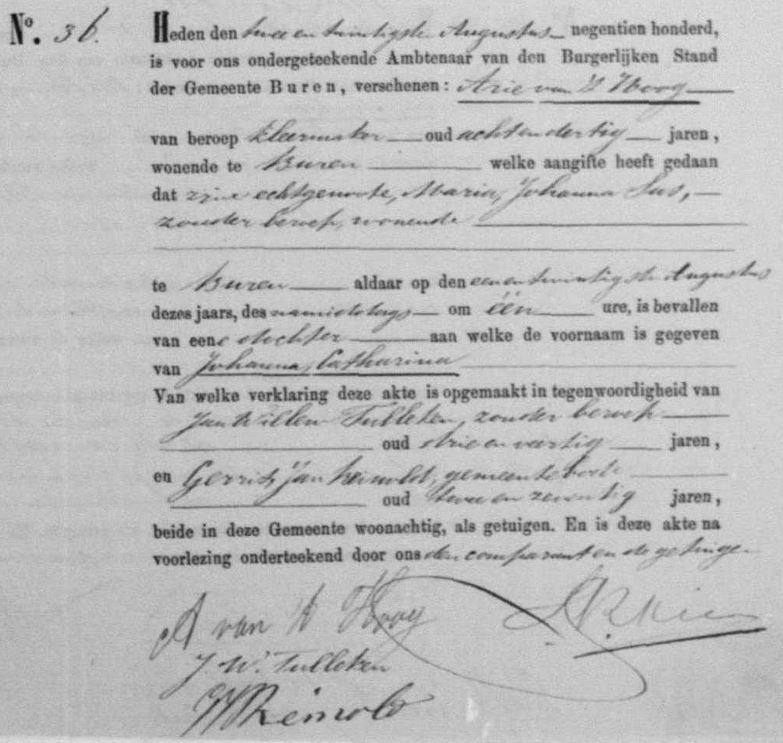 No. 36.
Heden den twee en twintigste Augustus negentien honderd,
is voor ons ondergeteekende Ambtenaar van den Burgerlijken Stand
der Gemeente Buren, verschenen: Arie van 't Hoog
van beroep kleermaker oud acht en dertig jaren,
wonende te Buren welke aangifte heeft gedaan
dat zijne echtgenoote, Maria, Johanna Sas,
zonder beroep, wonende
te Buren aldaar op den een en twintigste Augustus
dezes jaars, des namiddags om één ure, is bevallen
van eene dochter aan welke de voornaam is gegeven
van Johanna, Catharina
Van welke verklaring deze akte is opgemaakt in tegenwoordigheid van
Jan Willem Tulleken, zonder beroep
oud drie en veertig jaren,
en Gerrit, Jan Reinold, gemeentebode
oud twee en zeventig jaren,
beide in deze Gemeente woonachtig, als getuigen. En is deze akte na
voorlezing onderteekend door ons den comparant en de getuigen
A van 't Hoog
J. W. Tulleken
Reinold